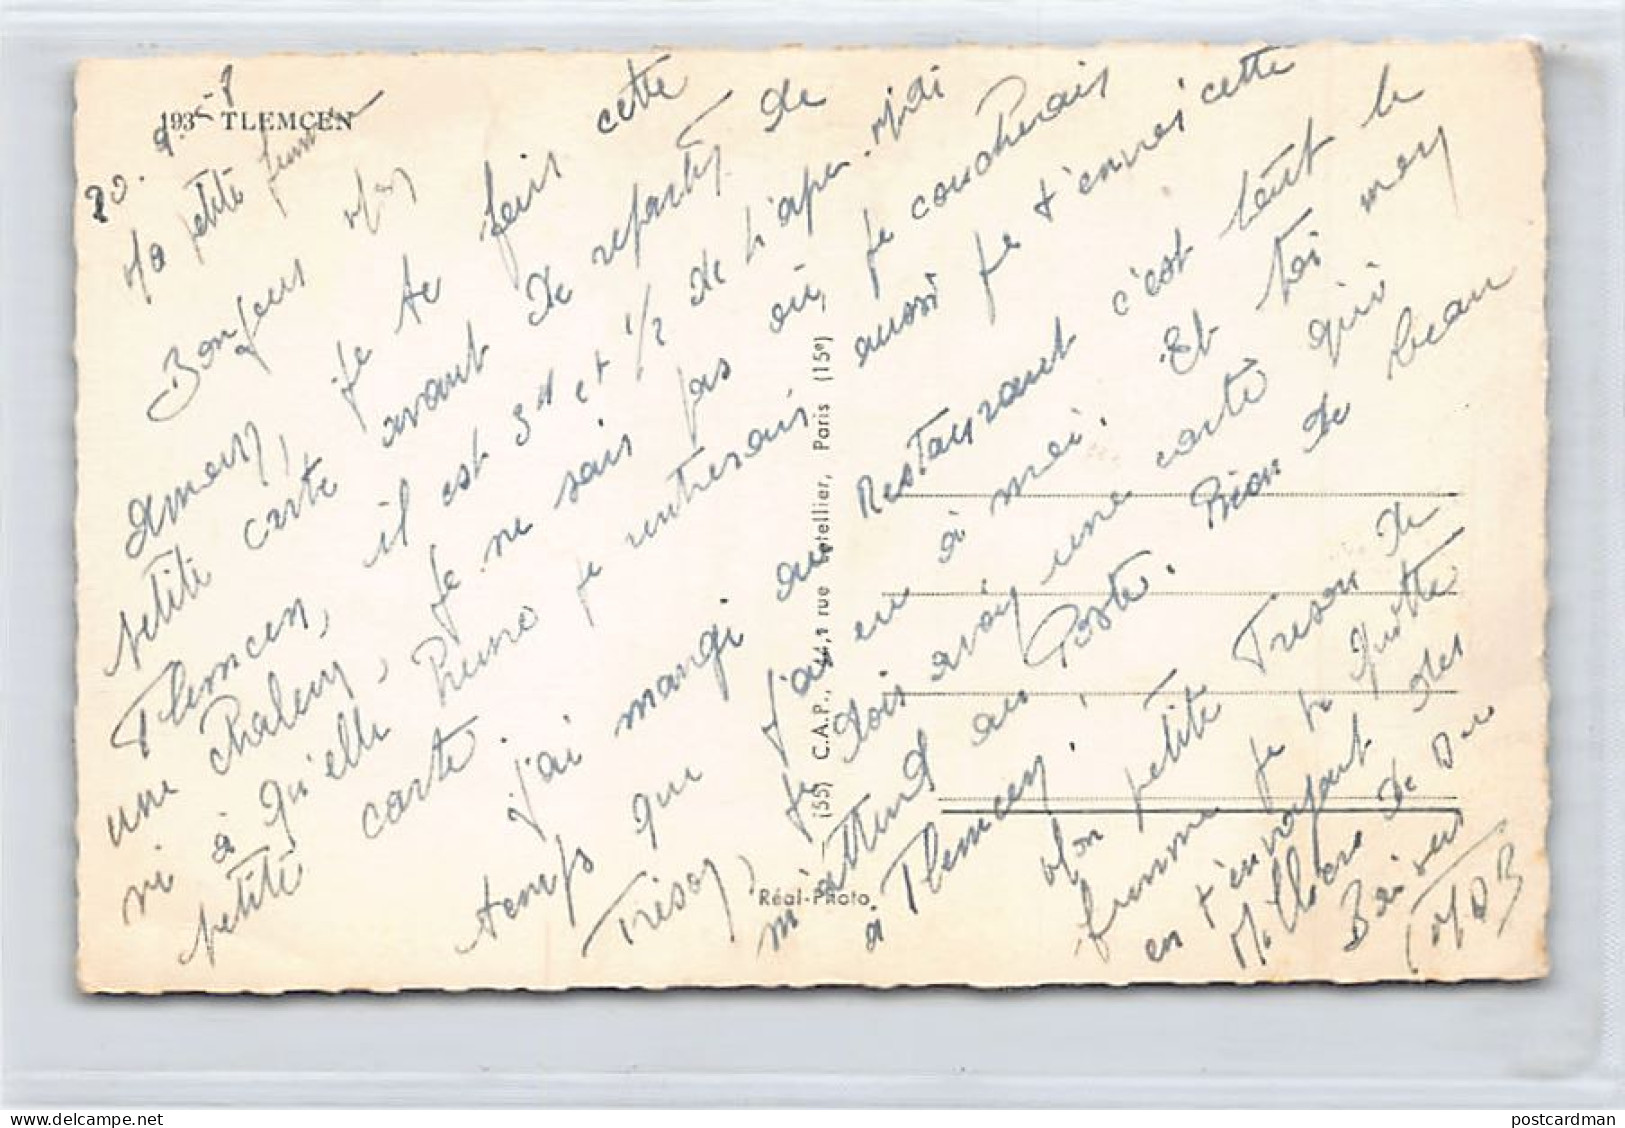 193 - TLEMCEN
Ma petite femme
Bonjour mon
amour, je te fais cette
petite carte avant de repartir de
Tlemcen, il est 3H et 1/2 de l'aper. midi
une chaleur, je ne sais pas où je coucherais
ni à qu'elle heure je rentrerais aussi je t'envoies cette
petite carte
j'ai mangé au Restaurant c'est tout le
temps qui j'ai eu à moi. Et toi mon
Trésor, je dois avoir une carte qui
m'attend au Poste. Rien de beau
à Tlemcen.
Mon petite Tresor de
femme je te quitte
en t'envoyant des
Milliers de Doux
Baisers
Réal-Photo
(55) C.A.P., 44, rue Letellier, Paris (15e)
postcardman